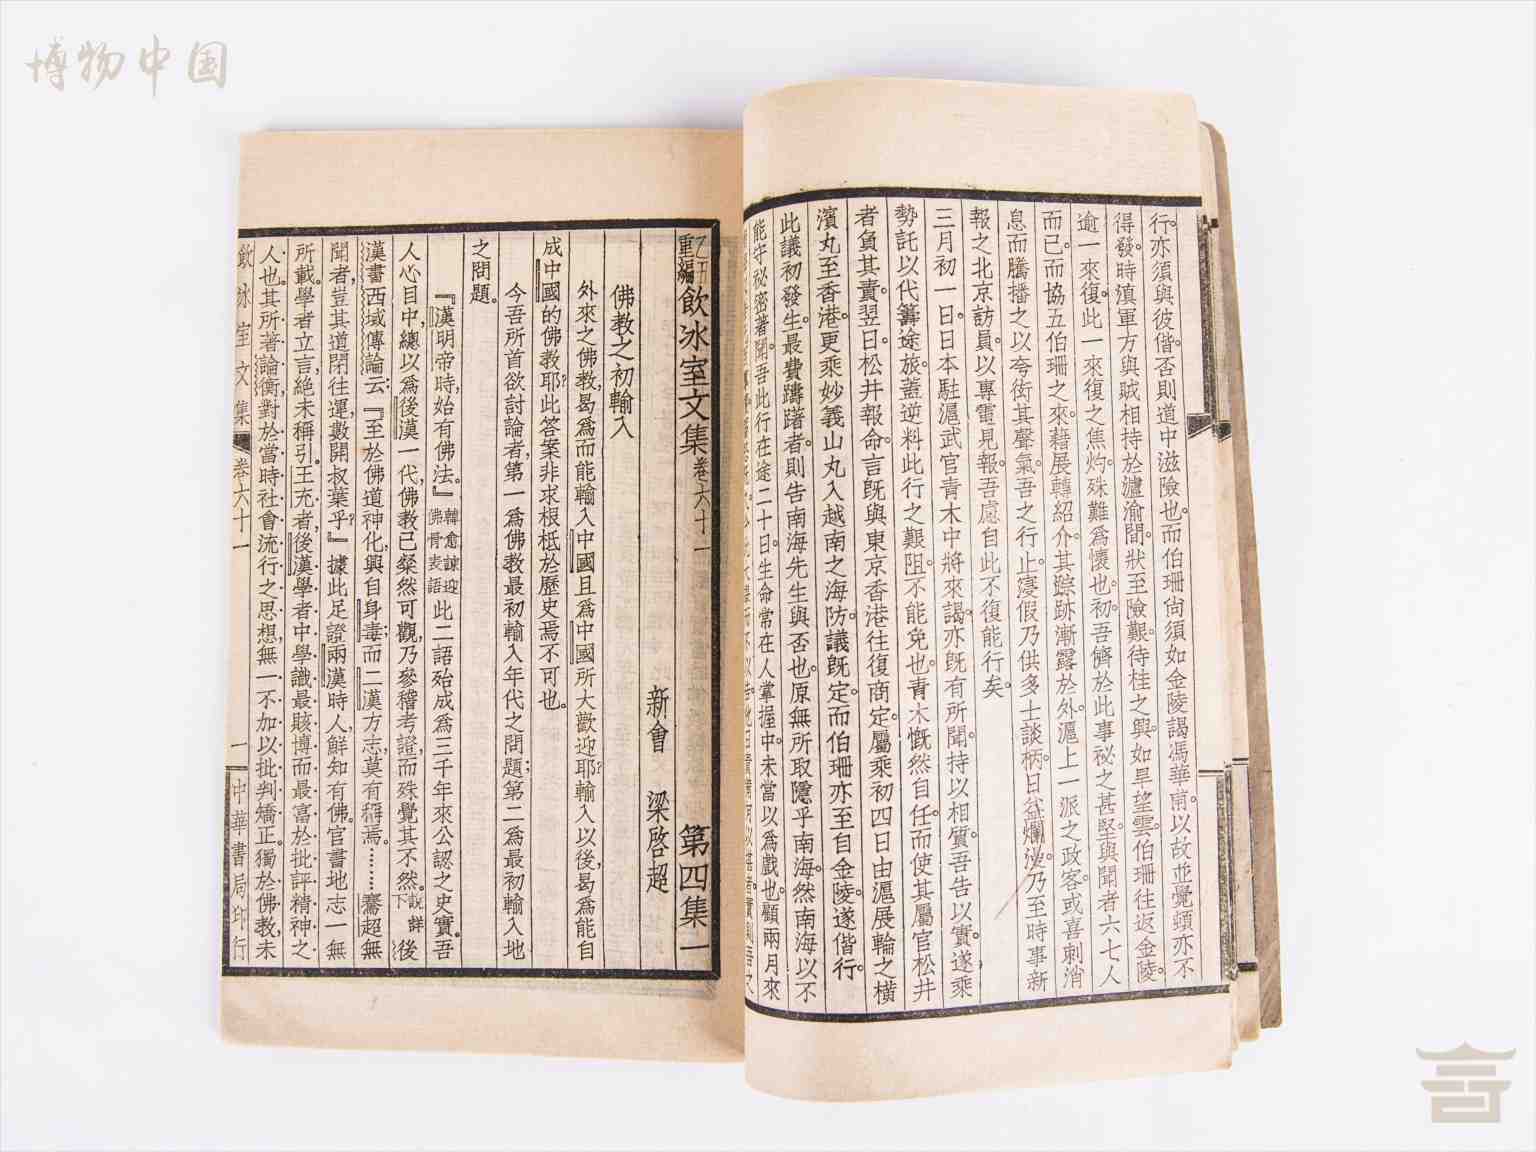 博物中国
行亦須與彼偕否則道中滋險也而伯珊尙須如金陵謁馮華甫以故並覺頓亦不
得發時滇軍方與賊相持於瀘渝間狀至險艱待桂之興如旱望雲伯珊往返金陵
逾一來復此一來復之焦灼殊難爲懷也初吾儕於此事祕之甚堅與聞者六七人
而已而協五伯珊之來藉展轉紹介其踪跡漸露於外滬上一派之政客或喜刺消
息而騰播之以夸衒其聲氣吾之行止寖假乃供多士談柄日益爛泌乃至時事新
報之北京訪員以專電見報吾慮自此不復能行矣
三月初一日日本駐滬武官青木中將來謁亦旣有所聞持以相質吾告以實遂乘
勢託以代籌途旅蓋逆料此行之艱阻不能免也青木慨然自任而使其屬官松井
者負其責翌日松井報命言旣與東京香港往復商定屬乘初四日由滬展輪之橫
濱丸至香港更乘妙義山丸入越南之海防議旣定而伯珊亦至自金陵遂偕行
此議初發生最費躊躇者則告南海先生與否也原無所取隱乎南海然南海以不
能守祕密著聞吾此行在途二十日生命常在人掌握中未當以爲戲也顧兩月來
乙丑重編飲冰室文集卷六十一 第四集一
新會 梁啓超
佛敎之初輸入
外來之佛敎曷爲而能輸入中國且爲中國所大歡迎耶?輸入以後,曷爲能自
成中國的佛敎耶?此答案非求根柢於歷史焉不可也。
今吾所首欲討論者,第一爲佛敎最初輸入年代之問題;第二爲最初輸入地
之問題。
『漢明帝時,始有佛法。』韓愈諫迎佛骨表語 此二語殆成爲三千年來公認之史實。吾
人心目中,總以爲後漢一代,佛敎已粲然可觀,乃參稽考證,而殊覺其不然。說詳下 後
漢書西域傳論云:『至於佛道神化,興自身毒;而二漢方志,莫有稱焉。……騫超無
聞者,豈其道閉往運,數開叔葉乎?』據此足證兩漢時人,鮮知有佛。官書地志,一無
所載。學者立言,絕未稱引。王充者,後漢學者中學識最賅博而最富於批評精神之
人也。其所著論衡,對於當時社會流行之思想,無一不加以批判矯正。獨於佛敎未
飲冰室文集 卷六十一 一 中華書局印行